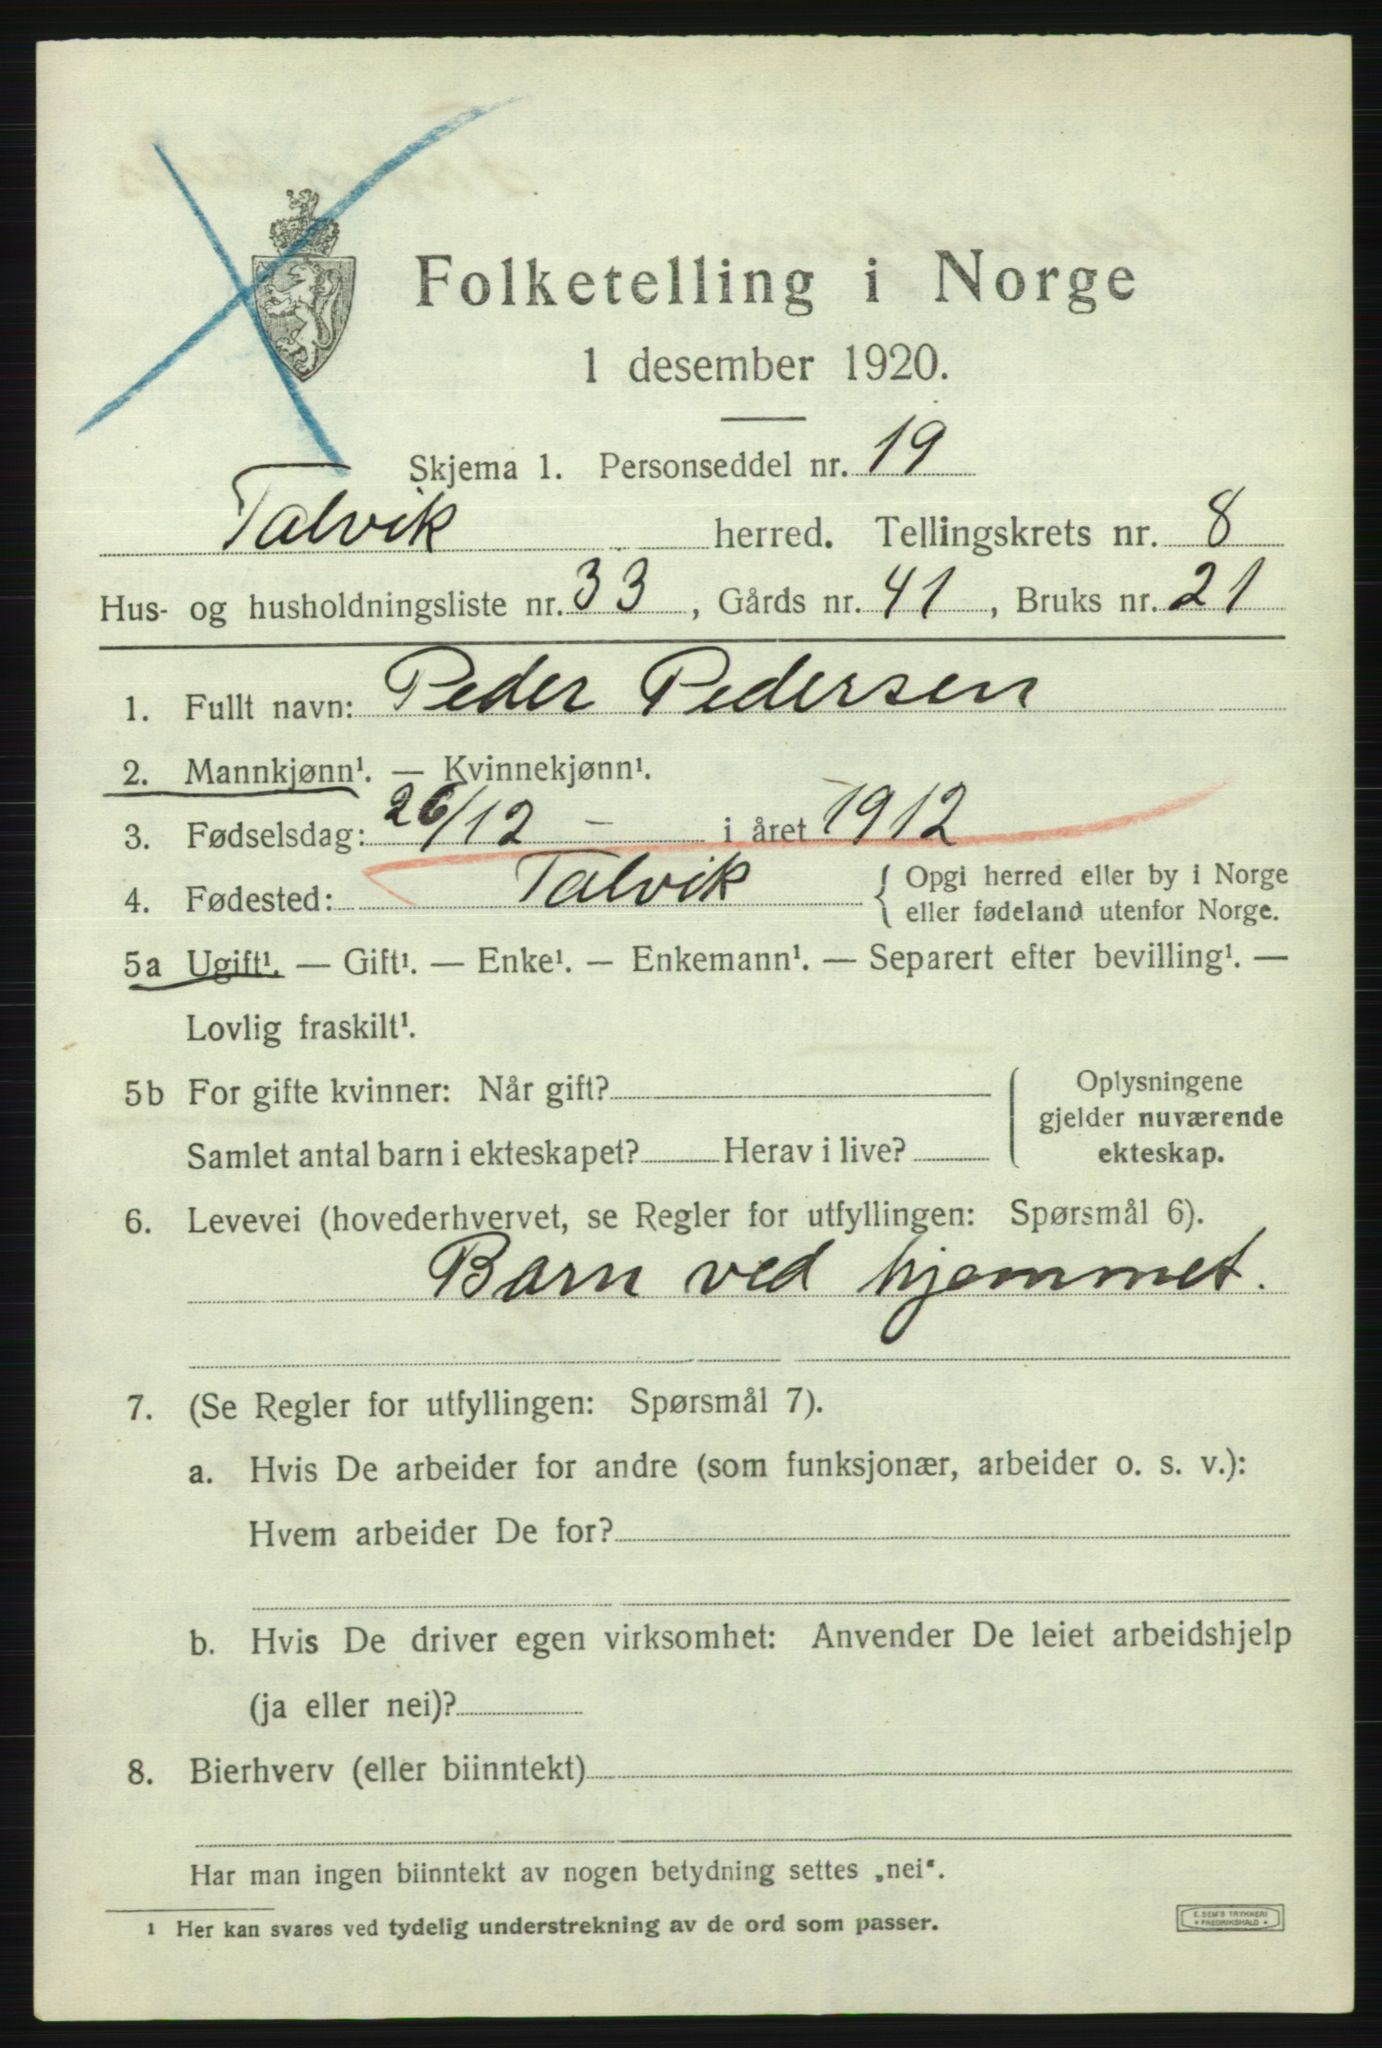 Folketelling i Norge
1 desember 1920.
Skjema 1. Personseddel nr. 19
Talvik herred. Tellingskrets nr. 8
Hus- og husholdningsliste nr. 33, Gårds nr. 41, Bruks nr. 21
1. Fullt navn: Peder Pedersen
2. Mannkjønn¹. — Kvinnekjønn¹.
3. Fødselsdag: 26/12 - i året 1912
4. Fødested: Talvik { Opgi herred eller by i Norge
eller fødeland utenfor Norge.
5a Ugift¹. — Gift¹. — Enke¹. — Enkemann¹. — Separert efter bevilling¹. —
Lovlig fraskilt¹.
5b For gifte kvinner: Når gift?
Samlet antal barn i ekteskapet? Herav i live?
Oplysningene
gjelder nuværende
ekteskap.
6. Levevei (hovederhvervet, se Regler for utfyllingen: Spørsmål 6).
Barn ved hjemmet.
7. (Se Regler for utfyllingen: Spørsmål 7).
a. Hvis De arbeider for andre (som funksjonær, arbeider o. s. v.):
Hvem arbeider De for?
b. Hvis De driver egen virksomhet: Anvender De leiet arbeidshjelp
(ja eller nei)?
8. Bierhverv (eller biinntekt)
Har man ingen biinntekt av nogen betydning settes „nei“.
1 Her kan svares ved tydelig understrekning av de ord som passer.
E. SEM'S TRYKKERI
* FREDRIKSHALD *